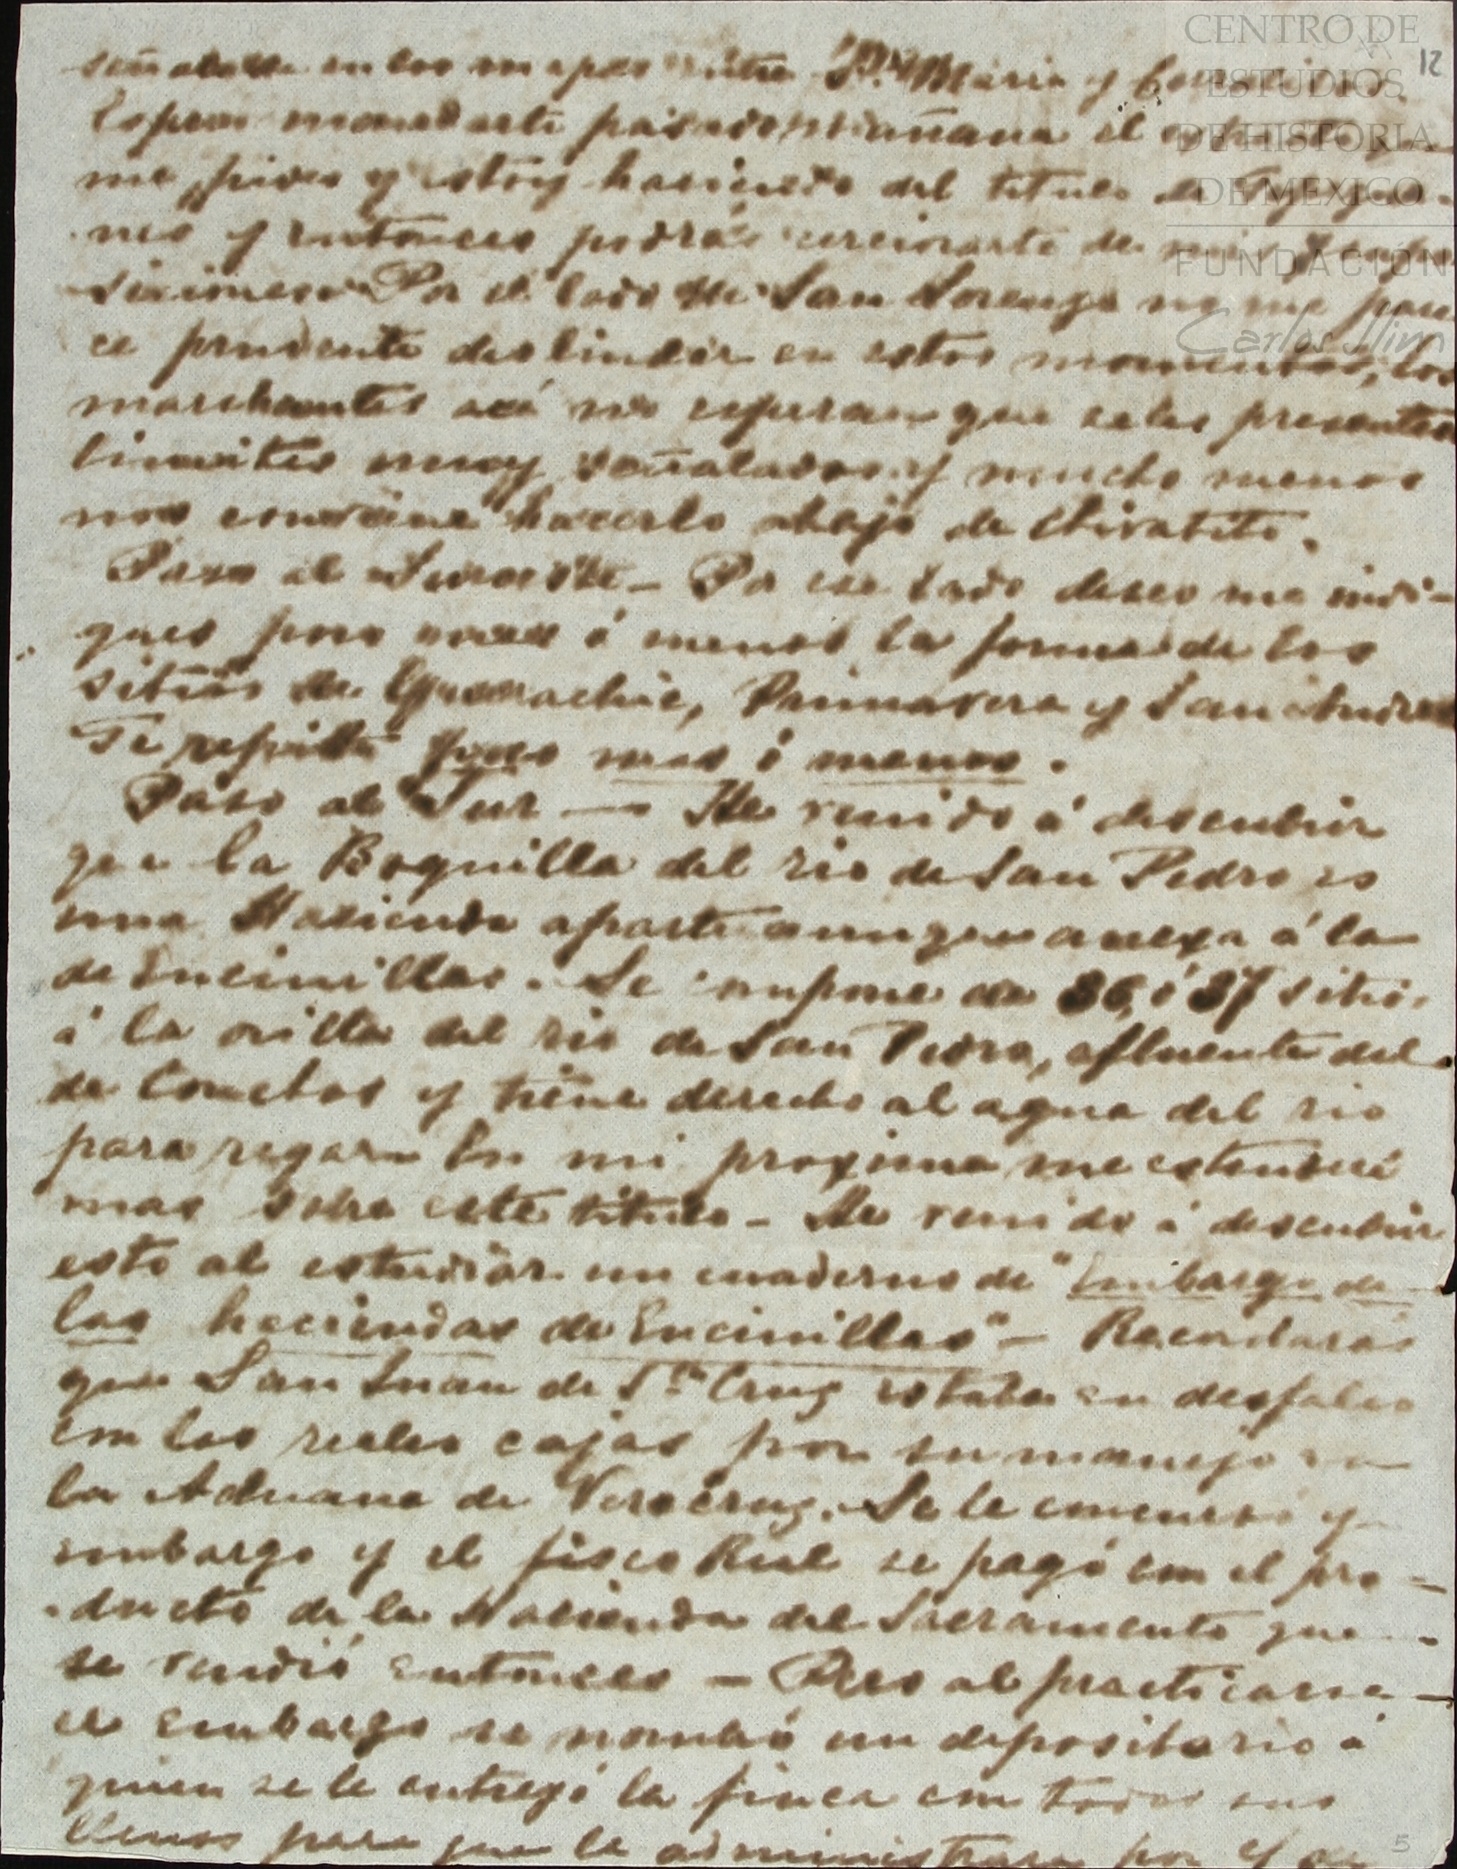 CENTRO DE
ESTUDIOS
DE HISTORIA
DE MEXICO
FUNDACIÓN
Carlos Slim
12
señalada en los mapas entre Sta. Maria y
Espero mandarte pasado mañana el que
me pides y estoy haciendo del titulo de
nes y entonces podrás cerciorarte de mis
siciones. Por el lado de San Lorenzo no me pare
ce prudente deslindar en estos momentos, los
marchantes acá no esperan que se les presenten
limites muy señalados y mucho menos
nos conviene hacerlo abajo de Chivatito.
Paso al Suroeste - Por ese lado deseo me indi-
ques poco mas ó menos la forma de los
sitios de Guerachic, Primavera y San Andres
Te repito poco mas ó menos.
Paso al Sur — He venido á descubrir
que la Boquilla del rio de San Pedro es
una Hacienda aparte aunque anexa á la
de Encinillas. Se compone de 36, ó 37 sitios
á la orilla del rio de San Pedro, afluente del
de Conchos y tiene derecho al agua del rio
para regar. En mi proxima me estenderé
mas sobre este titulo - He venido á descubrir
esto al estudiar un cuaderno de "Embargo de
las haciendas de Encinillas" - Recordarás
que San Juan de Sta Cruz estaba en desfalco
con las reales cajas por su manejo en
la Aduana de Veracruz. Se le concursó y
embargo y el fisco Real se pagó con el pro-
ducto de la Hacienda del Sacramento que
se vendió entonces - Pero al practicarse
el embargo se nombró un depositario á
quien se le entregó la finca con todos sus
llenos para que la administrara por él
5